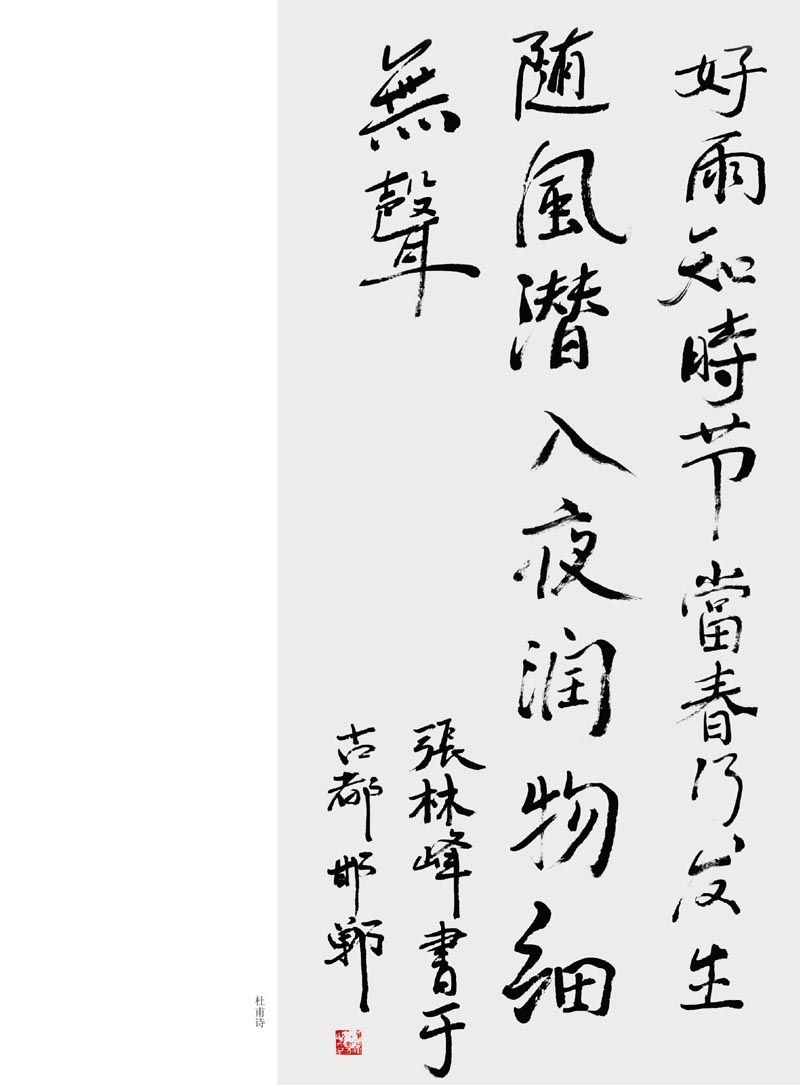 好雨知時节當春乃发生
随風潜入夜润物细
無聲
張林峰書于
古都邯郸
杜甫诗